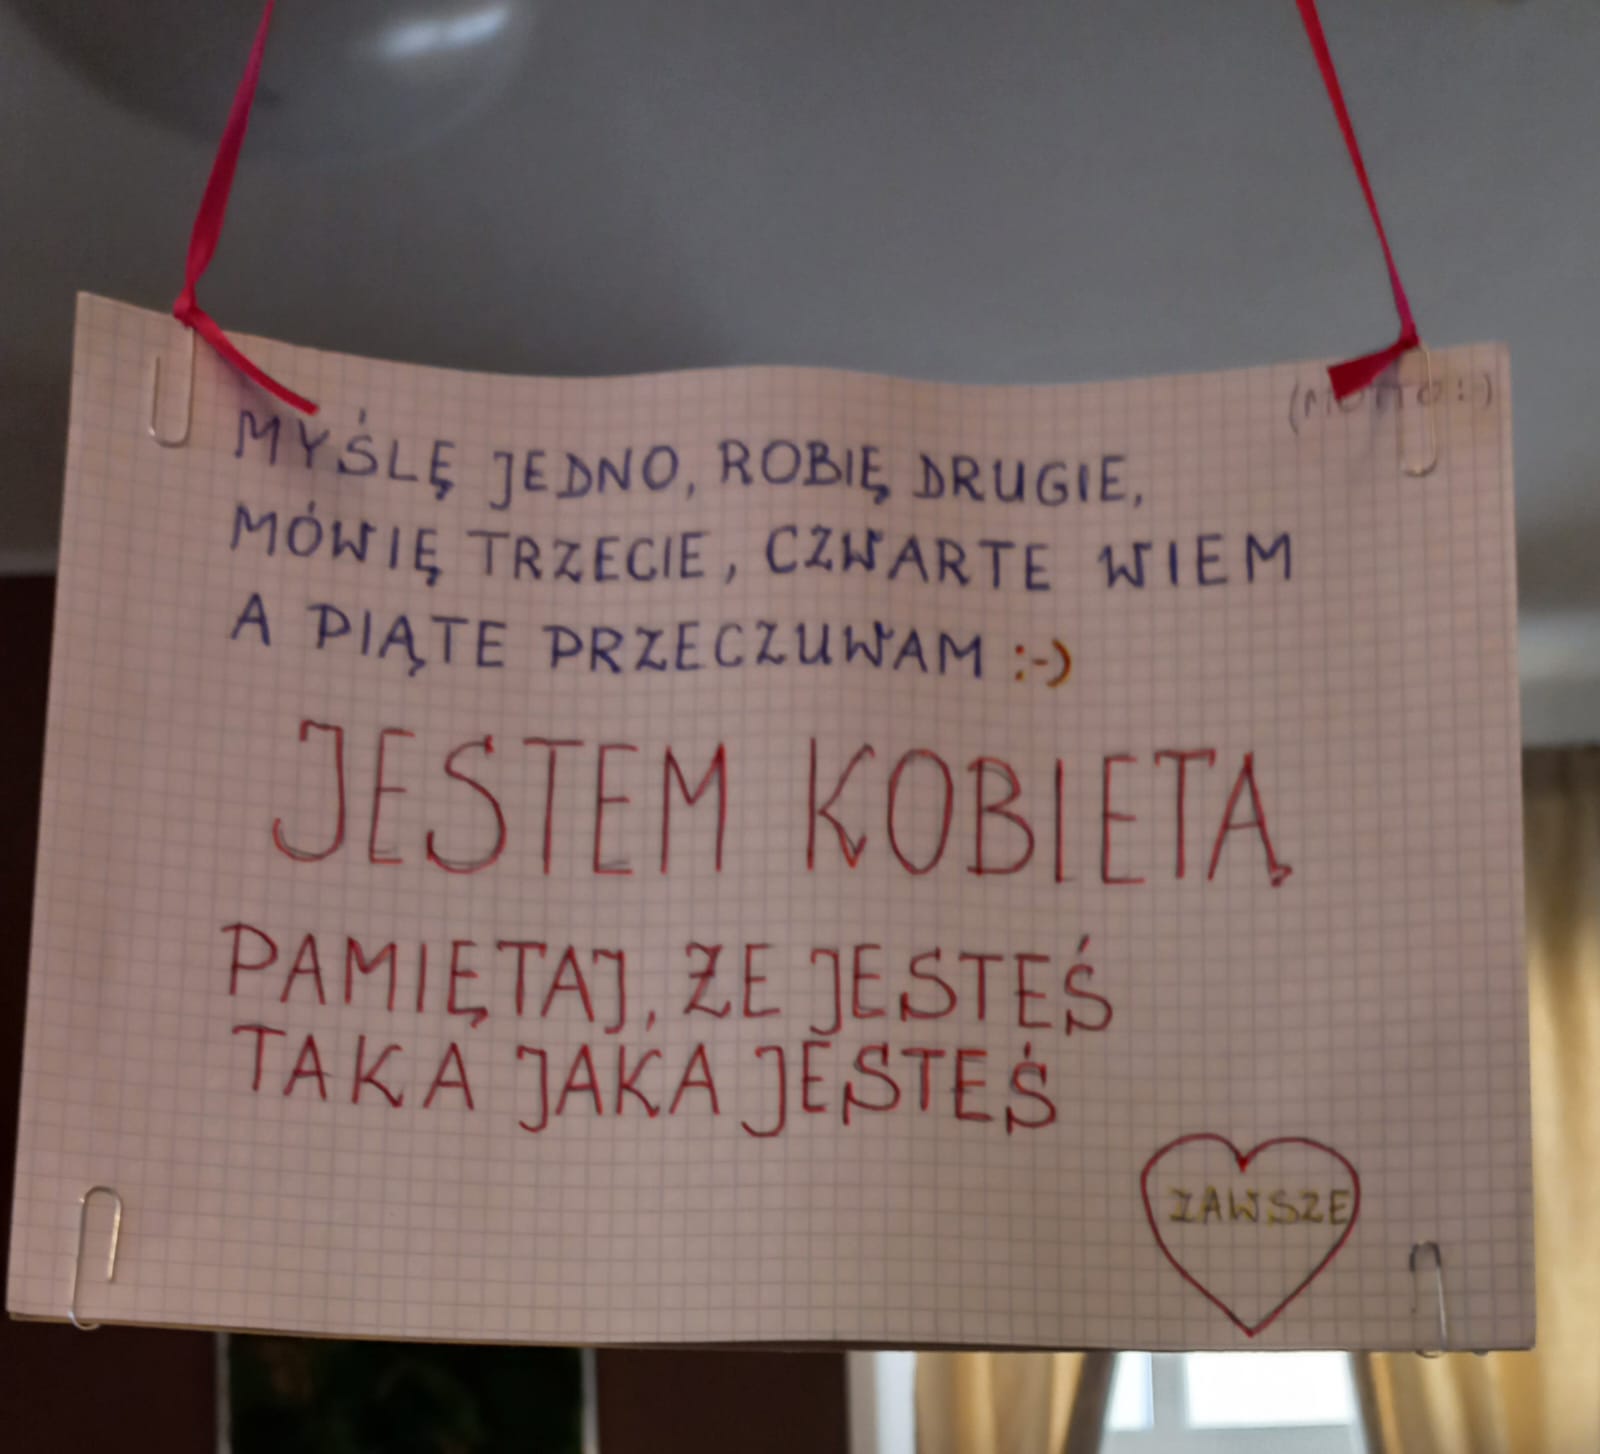 (MOTTO:)
MYŚLĘ JEDNO, ROBIĘ DRUGIE,
MÓWIĘ TRZECIE, CZWARTE WIEM
A PIĄTE PRZECZUWAM :-)
JESTEM KOBIETĄ
PAMIĘTAJ, ŻE JESTEŚ
TAKA JAKA JESTEŚ
ZAWSZE